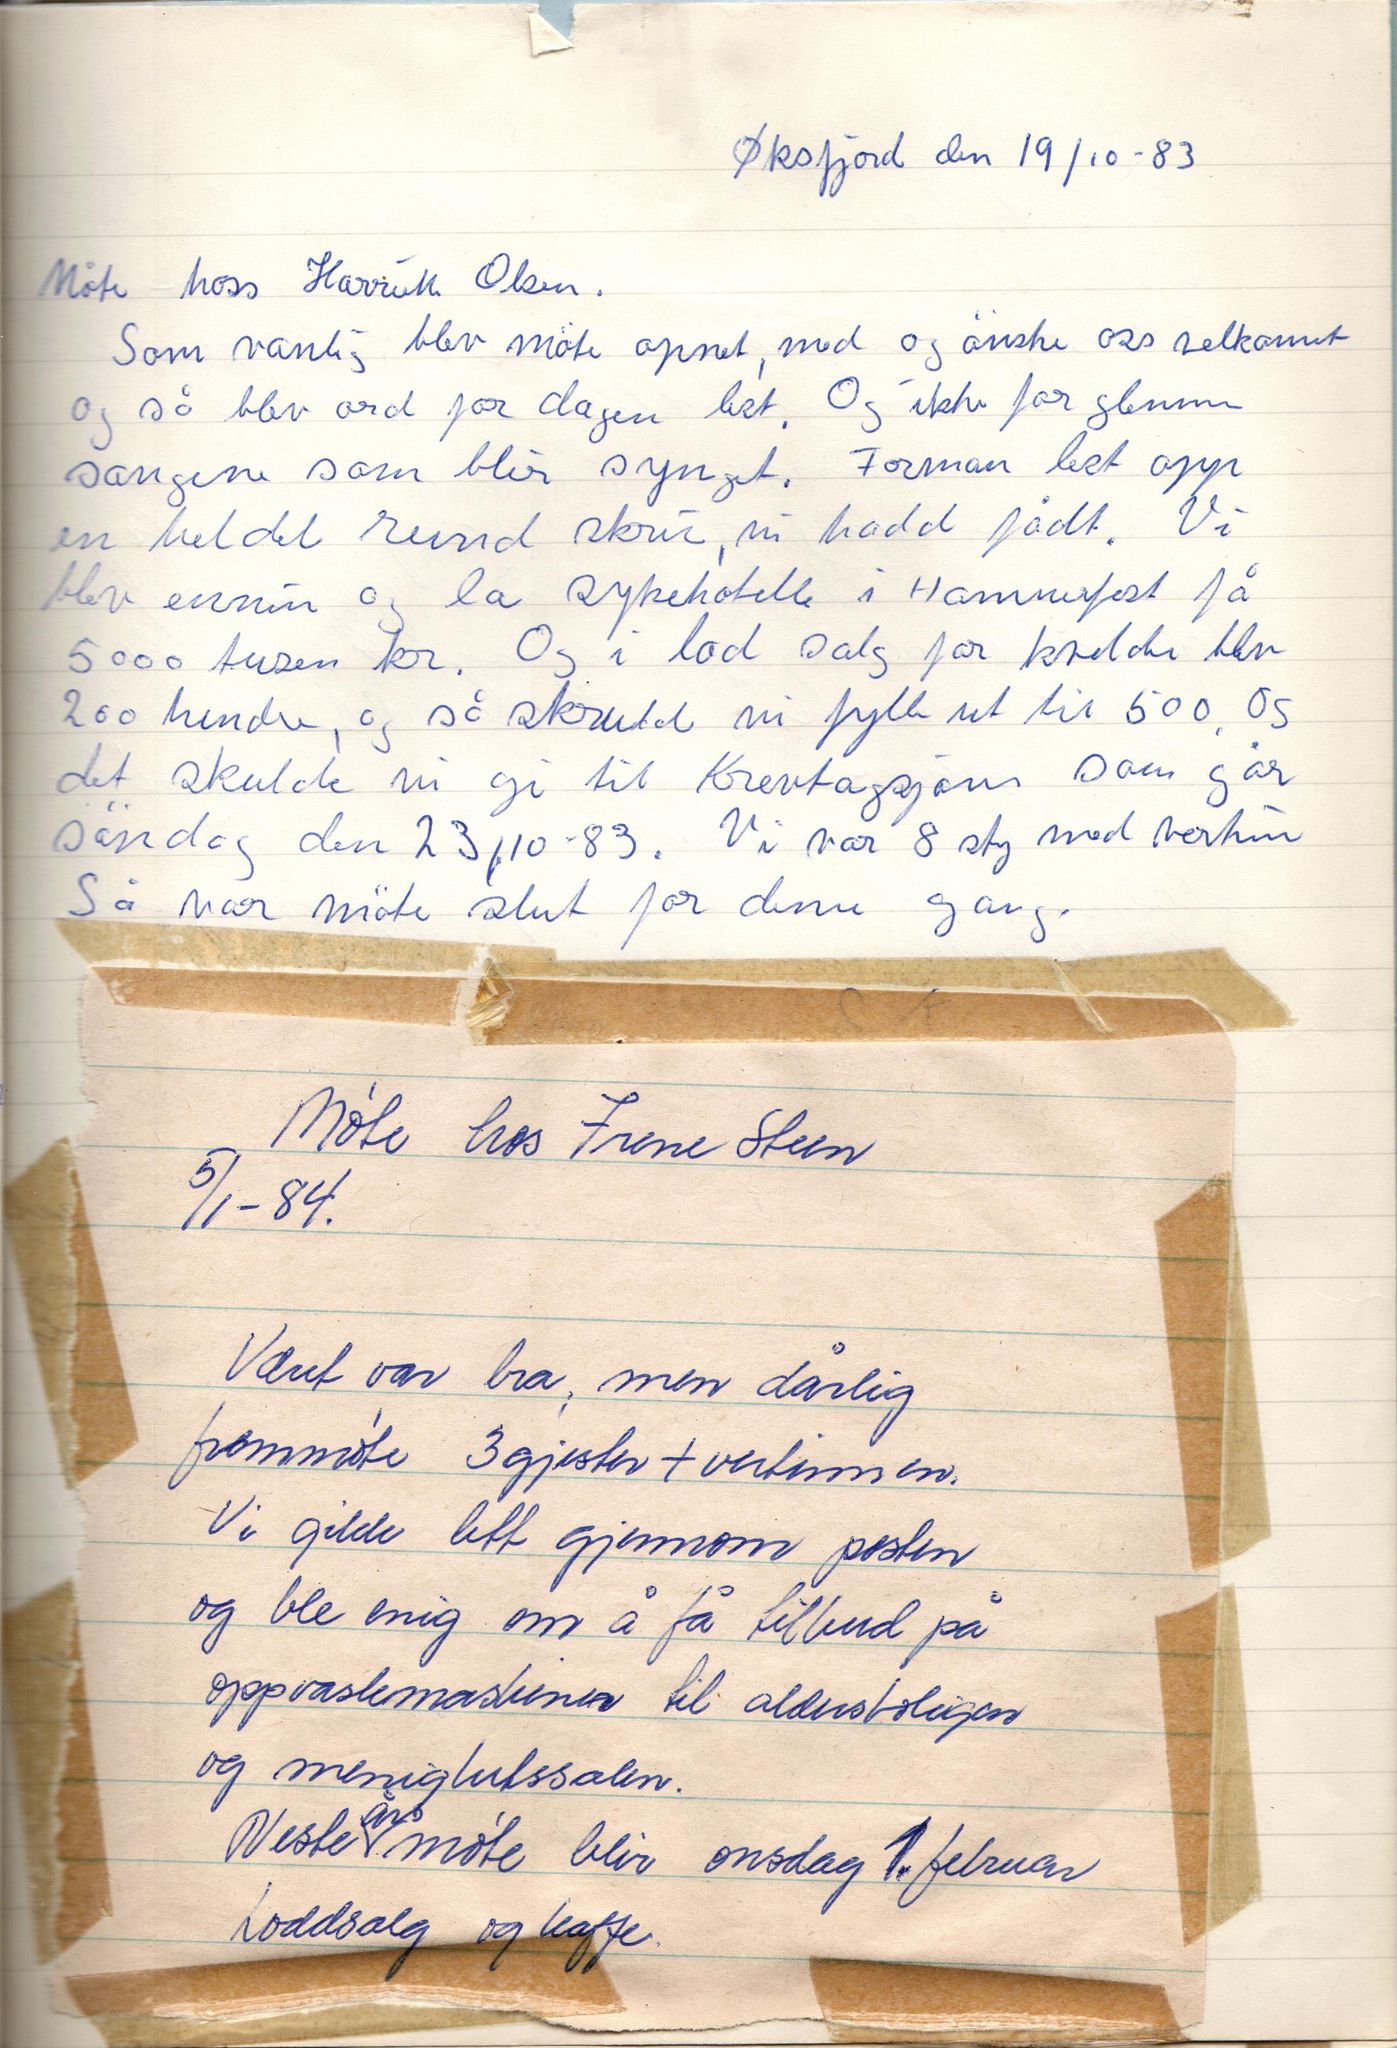 Øksfjord den 19/10-83
Möte hoss Harriett Olsen.
Som vanlig blev möte opnet, med og önske oss velkomet
og så blev ord for dagen lest. Og ikke for glemme
sangene som blir synget. Forman lest opp
en hel del rund skriv, vi hadd fådt. Vi
blev ennin og la sykehotelle i Hammerfest få
5000 tusen kr. Og i lod salg for kvelde blev
200 hundre, og så skuld vi fylle ut til 500. Og
det skulde vi gi til Kreftagsjon som går
söndag den 23/10-83. Vi var 8 sty med vertin
Så var möte slut for denne gang.
Móte hos Irene Steen
5/1-84.
Været var bra, men dårlig
fremmóte 3 gjester + vertinnen.
Vi gikk lett gjennom posten
og ble enig om å få tilbud på
oppvaskmaskiner til aldersboligen
og menighetssalen.
Neste års móte blir onsdag 1. februar
Loddsalg og kaffe.